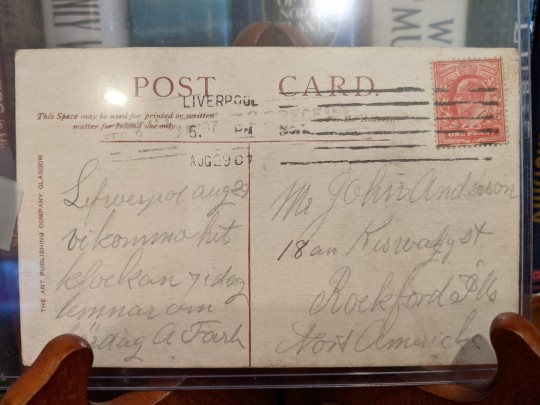 POST CARD.
This Space may be used for printed or written
matter for Inland use only.
LIVERPOOL
5. PM
AUG 29 07
THE ART PUBLISHING COMPANY GLASGOW
Lefwerpol aug 29
vi kommo hit
klockan 7 i dag
lemnar om
lördag A Farh
Mr John Anderson
18 an st
Rockford Ills
Nort America